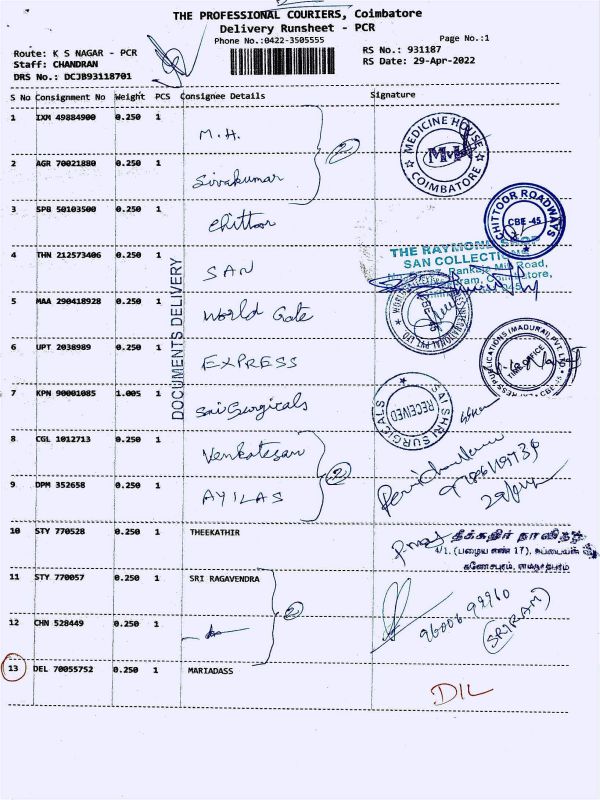 THE PROFESSIONAL COURIERS, Coimbatore
Delivery Runsheet - PCR
Phone No.:0422-3505555
Page No.:1
Route: K S NAGAR - PCR
RS No.: 931187
Staff: CHANDRAN
RS Date: 29-Apr-2022
DRS No.: DCJB93118701
S No Consignment No Weight PCS Consignee Details Signature
1 IXM 49884900 0.250 1 M.H.
2
MEDICINE HOUSE
COIMBATORE
2 AGR 70021880 0.250 1 Sivakumar
3 SPB 50103500 0.250 1 Chittoor
CHITTOOR ROADWAYS
CBE -45
4 THN 212573406 0.250 1 SAN
THE RAYMOND SHOP
SAN COLLECTIONS
Mill Road,
DOCUMENTS DELIVERY
5 MAA 290418928 0.250 1 World Gate
6 UPT 2038989 0.250 1 EXPRESS
PUBLICATIONS (MADURAI) PVT LTD
7 KPN 90001085 1.005 1 Sai Surgicals
SAI SHRI SURGICALS
RECEIVED
8 CGL 1012713 0.250 1 Venkatesan
2
9 DPM 352658 0.250 1 AYILAS
10 STY 770528 0.250 1 THEEKATHIR
தீக்கதிர்
4/1, (பழைய எண் 17),
11 STY 770057 0.250 1 SRI RAGAVENDRA
2
12 CHN 528449 0.250 1
(SRIRAM)
13 DEL 70055752 0.250 1 MARIADASS
DIL